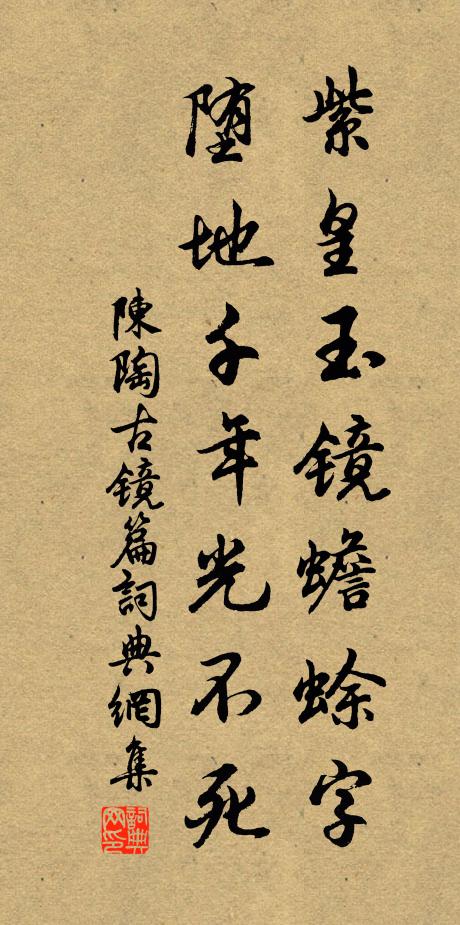 紫皇玉镜蟾蜍字
堕地千年光不死
陳陶古镜篇詞典網集
詞典網印